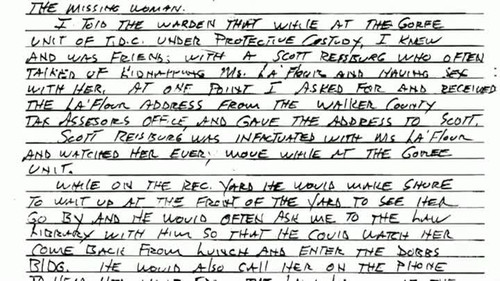 THE MISSING WOMAN.
I TOLD THE WARDEN THAT WHILE AT THE GOREE
UNIT OF T.D.C. UNDER PROTECTIVE CUSTODY, I KNEW
AND WAS FRIENDS WITH A SCOTT REISBURG WHO OFTEN
TALKED OF KIDNAPPING MS. LA'FLOUR AND HAVING SEX
WITH HER. AT ONE POINT I ASKED FOR AND RECEIVED
THE LA'FLOUR ADDRESS FROM THE WALKER COUNTY
TAX ASSESORS OFFICE, AND GAVE THE ADDRESS TO SCOTT.
SCOTT REISBURG WAS INFACTUATED WITH MS LA'FLOUR
AND WATCHED HER EVERY MOVE WHILE AT THE GOREE
UNIT.
WHILE ON THE REC. YARD HE WOULD MAKE SHURE
TO WAIT UP AT THE FRONT OF THE YARD TO SEE HER
GO BY AND HE WOULD OFTEN ASK ME TO THE LAW
LIBRARY WITH HIM SO THAT HE COULD WATCH HER
COME BACK FROM LUNCH AND ENTER THE DOBBS
BLDG. HE WOULD ALSO CALL HER ON THE PHONE